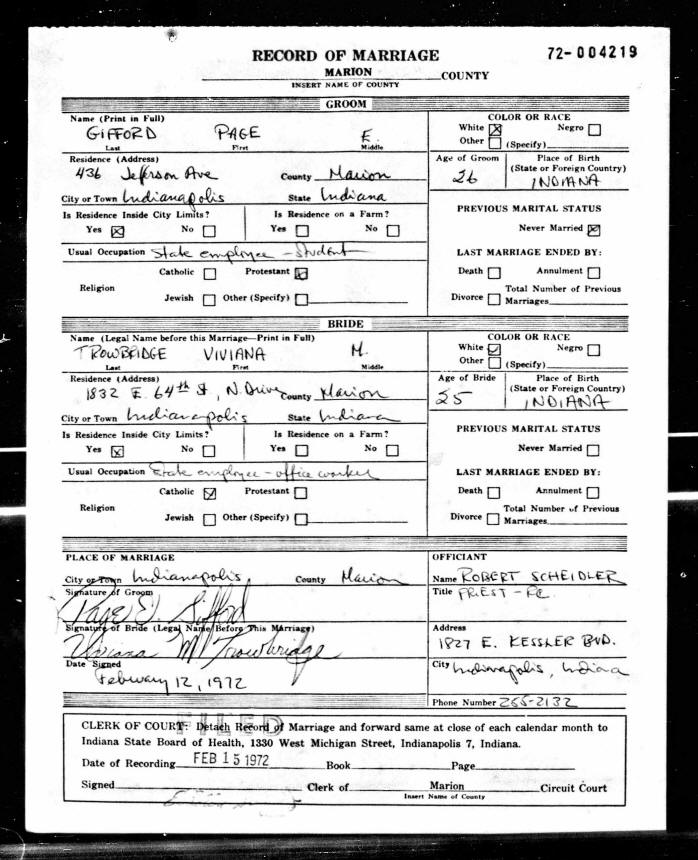 RECORD OF MARRIAGE 72-004219
MARION COUNTY
INSERT NAME OF COUNTY
GROOM
Name (Print in Full)
GIFFORD PAGE E.
Last First Middle
COLOR OR RACE
White ☒ Negro ☐
Other ☐ (Specify)
Residence (Address)
436 Jefferson Ave County Marion
City or Town Indianapolis State Indiana
Age of Groom
26
Place of Birth
(State or Foreign Country)
INDIANA
Is Residence Inside City Limits? Is Residence on a Farm?
Yes ☒ No ☐ Yes ☐ No ☐
PREVIOUS MARITAL STATUS
Never Married ☒
Usual Occupation State employee - Student
LAST MARRIAGE ENDED BY:
Death ☐ Annulment ☐
Divorce ☐ Total Number of Previous
Marriages
Catholic ☐ Protestant ☒
Religion
Jewish ☐ Other (Specify) ☐
BRIDE
Name (Legal Name before this Marriage—Print in Full)
TROWBRIDGE VIVIANA M.
Last First Middle
COLOR OR RACE
White ☑ Negro ☐
Other ☐ (Specify)
Residence (Address)
1832 E. 64th St, N. Drive County Marion
City or Town Indianapolis State Indiana
Age of Bride
25
Place of Birth
(State or Foreign Country)
INDIANA
Is Residence Inside City Limits? Is Residence on a Farm?
Yes ☒ No ☐ Yes ☐ No ☐
PREVIOUS MARITAL STATUS
Never Married ☐
Usual Occupation State employee - office worker
LAST MARRIAGE ENDED BY:
Death ☐ Annulment ☐
Divorce ☐ Total Number of Previous
Marriages
Catholic ☑ Protestant ☐
Religion
Jewish ☐ Other (Specify) ☐
PLACE OF MARRIAGE
City or Town Indianapolis, County Marion
Signature of Groom
Page E. Gifford
Signature of Bride (Legal Name Before This Marriage)
Viviana M Trowbridge
Date Signed
February 12, 1972
OFFICIANT
Name ROBERT SCHEIDLER
Title PRIEST - RC.
Address
1827 E. KESSLER BVD.
City Indianapolis, Indiana
Phone Number 255-2132
FILED
CLERK OF COURT: Detach Record of Marriage and forward same at close of each calendar month to
Indiana State Board of Health, 1330 West Michigan Street, Indianapolis 7, Indiana.
Date of Recording FEB 15 1972 Book Page
Signed Clerk of Marion Circuit Court
Insert Name of County